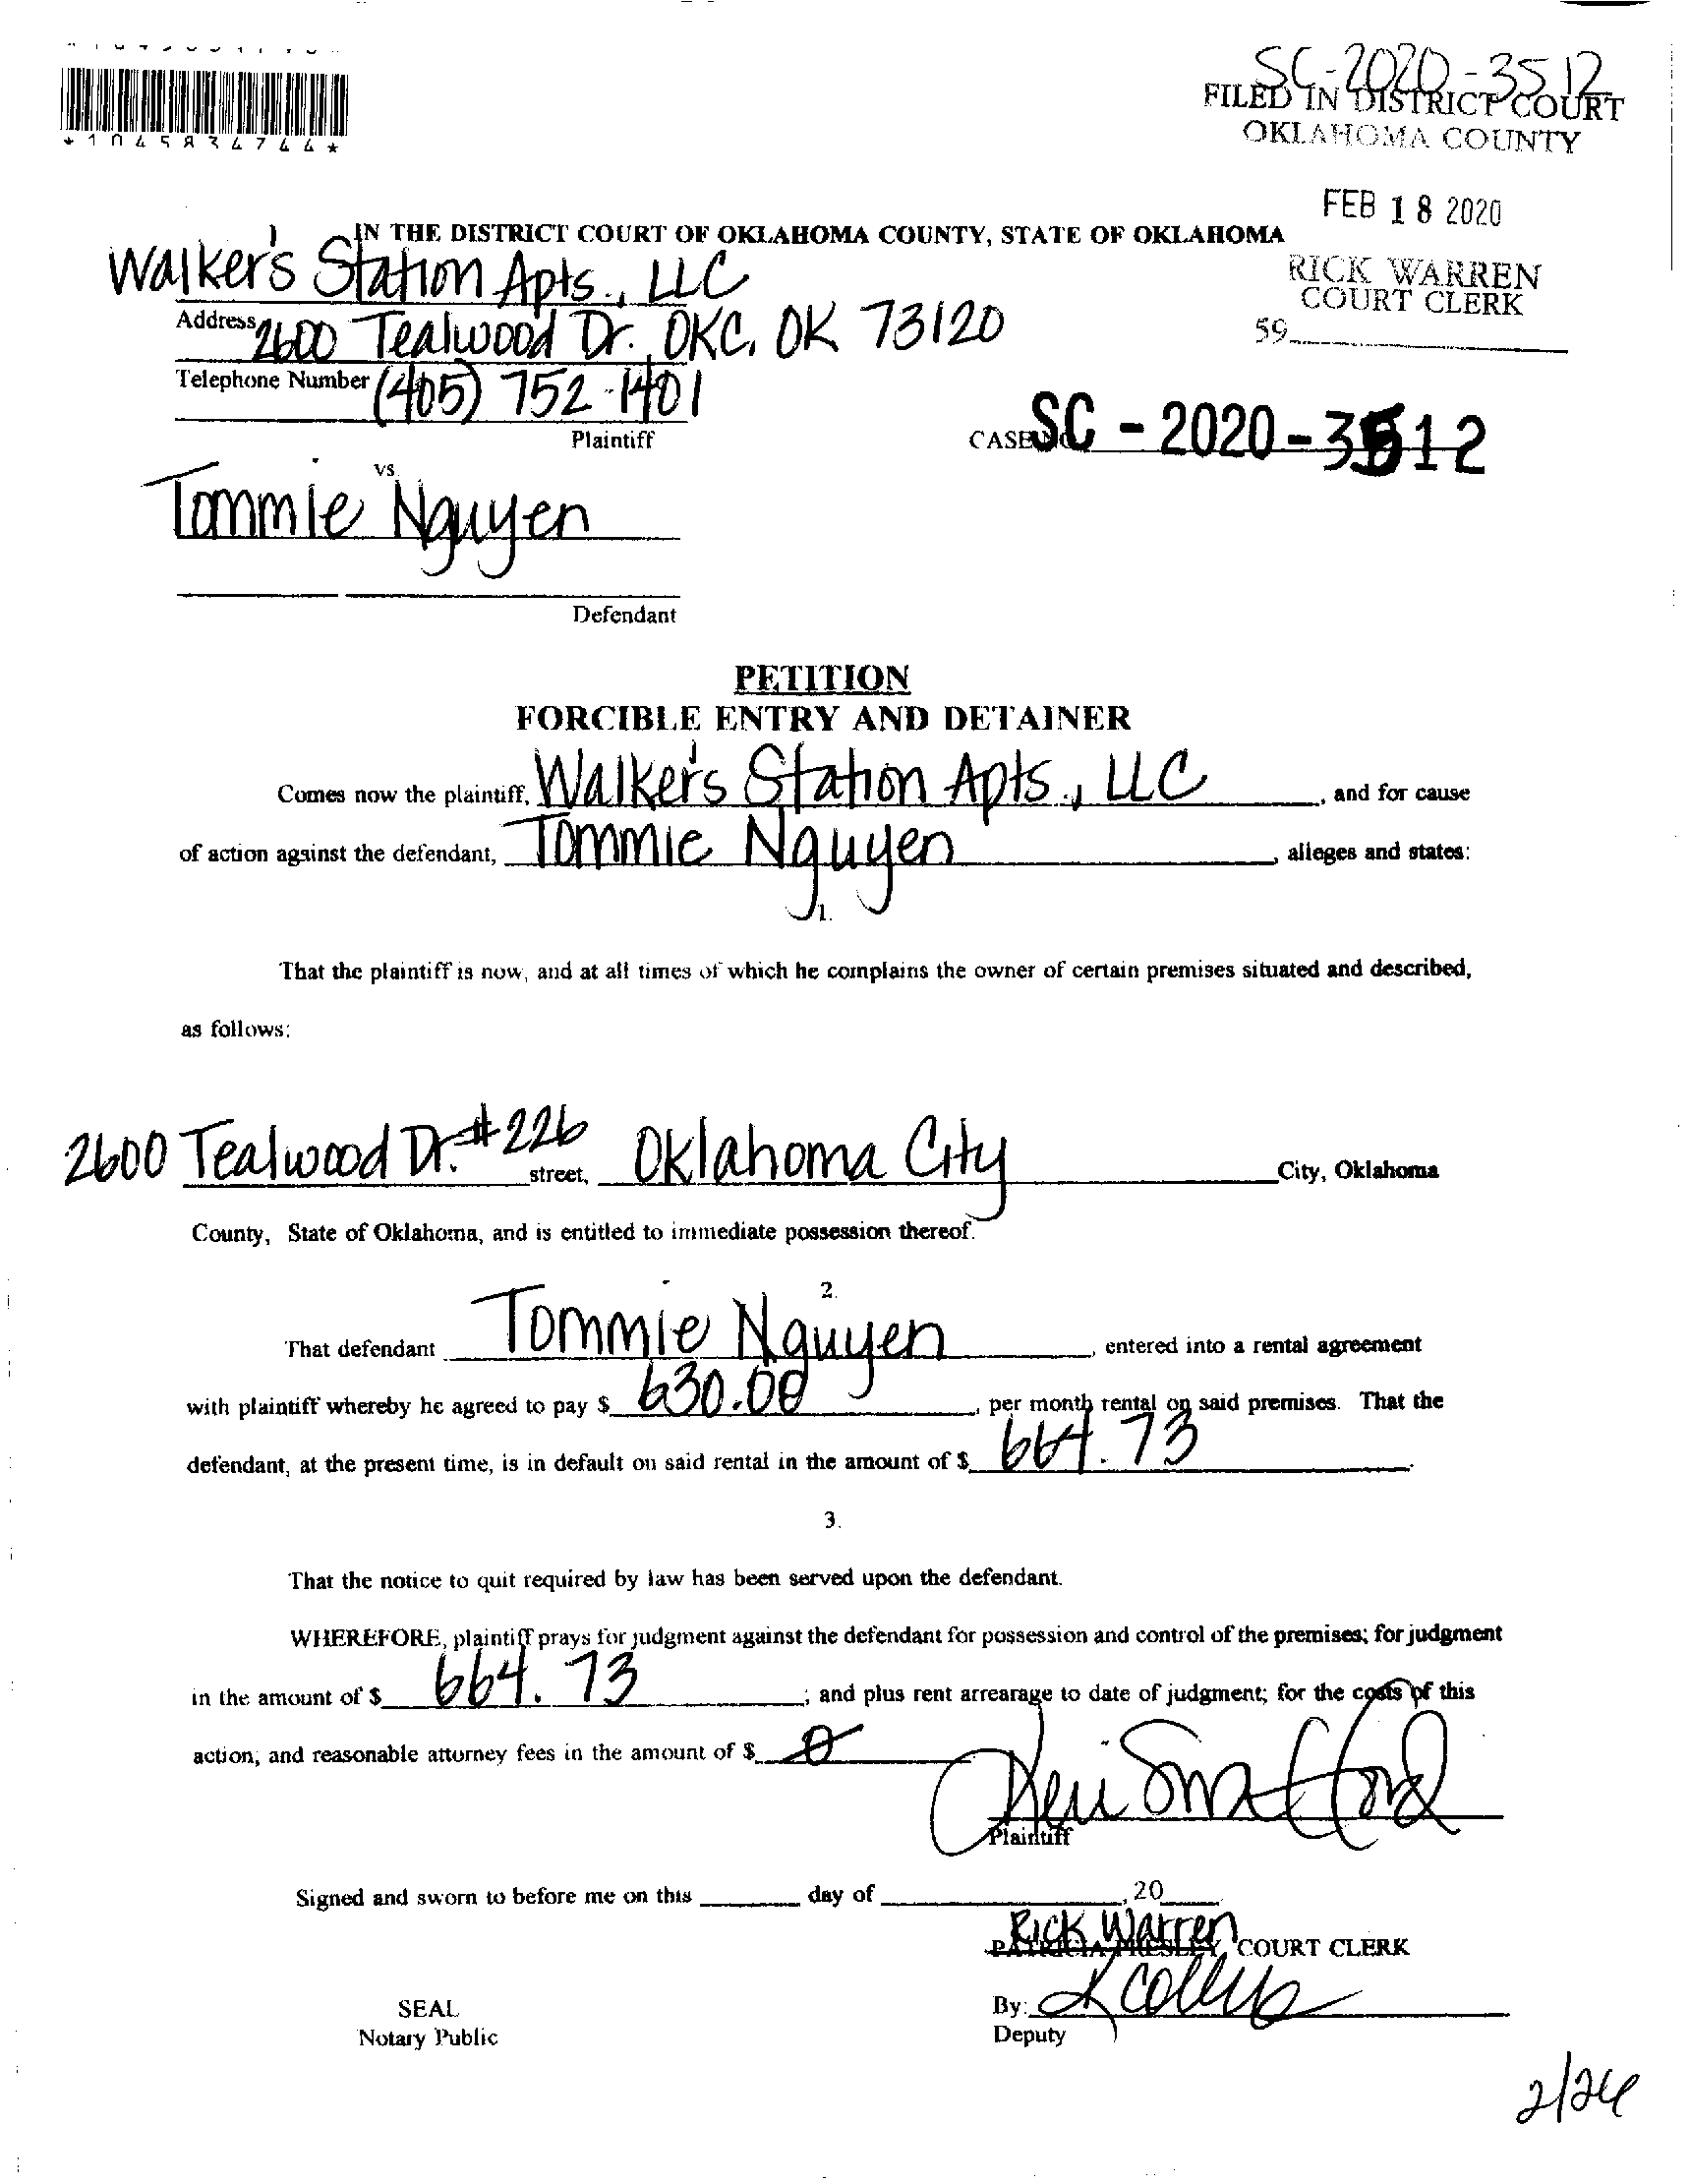 SC-2020-3512
FILED IN DISTRICT COURT
OKLAHOMA COUNTY
*1045834744*
FEB 18 2020
IN THE DISTRICT COURT OF OKLAHOMA COUNTY, STATE OF OKLAHOMA
RICK WARREN
COURT CLERK
59
Walker's Station Apts., LLC
Address 2600 Tealwood Dr. OKC, OK 73120
Telephone Number (405) 752-1401
Plaintiff
CASE NO. SC - 2020 - 3512
vs.
Tommie Nguyen
Defendant
PETITION
FORCIBLE ENTRY AND DETAINER
Comes now the plaintiff, Walker's Station Apts., LLC, and for cause
of action against the defendant, Tommie Nguyen, alleges and states:
1.
That the plaintiff is now, and at all times of which he complains the owner of certain premises situated and described,
as follows:
2600 Tealwood Dr. #226 street, Oklahoma City City, Oklahoma
County, State of Oklahoma, and is entitled to immediate possession thereof.
2.
That defendant Tommie Nguyen, entered into a rental agreement
with plaintiff whereby he agreed to pay $ 630.00, per month rental on said premises. That the
defendant, at the present time, is in default on said rental in the amount of $ 664.73.
3.
That the notice to quit required by law has been served upon the defendant.
WHEREFORE, plaintiff prays for judgment against the defendant for possession and control of the premises; for judgment
in the amount of $ 664.73; and plus rent arrearage to date of judgment; for the costs of this
action, and reasonable attorney fees in the amount of $ 0
Plaintiff
Signed and sworn to before me on this ____ day of ____, 20__
Rick Warren
PATRICIA PRESLEY, COURT CLERK
SEAL
By:
Notary Public
Deputy
2/24